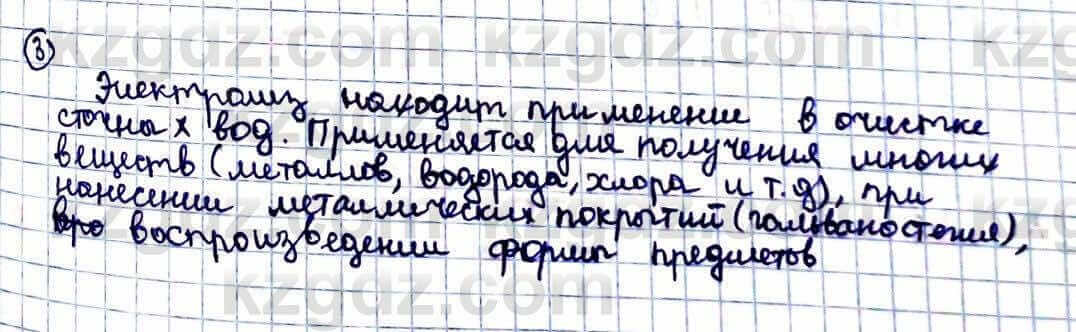 3
Электролиз находит применение в очистке
сточных вод. Применяется для получения многих
веществ (металлов, водорода, хлора и т.д), при
нанесении металлических покрытий (гальваностегия),
воспроизведении формы предметов
kzgdz.com